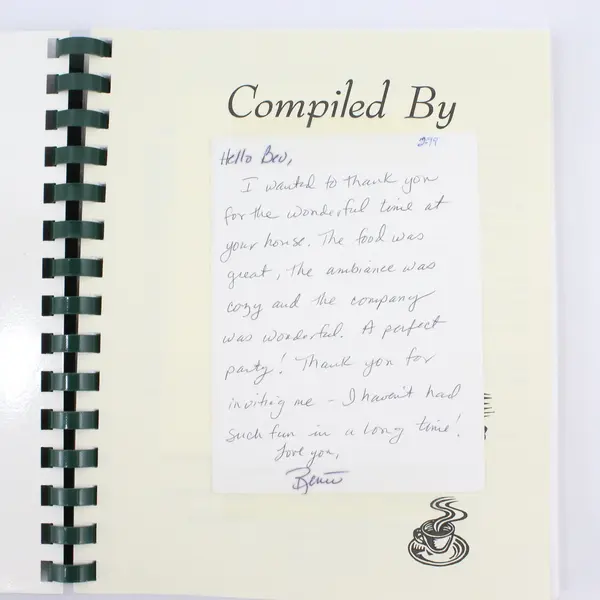 Compiled By
299
Hello Bev,
I wanted to thank you
for the wonderful time at
your house. The food was
great, the ambiance was
cozy and the company
was wonderful. A perfect
party! Thank you for
inviting me - I haven't had
such fun in a long time!
Love you,